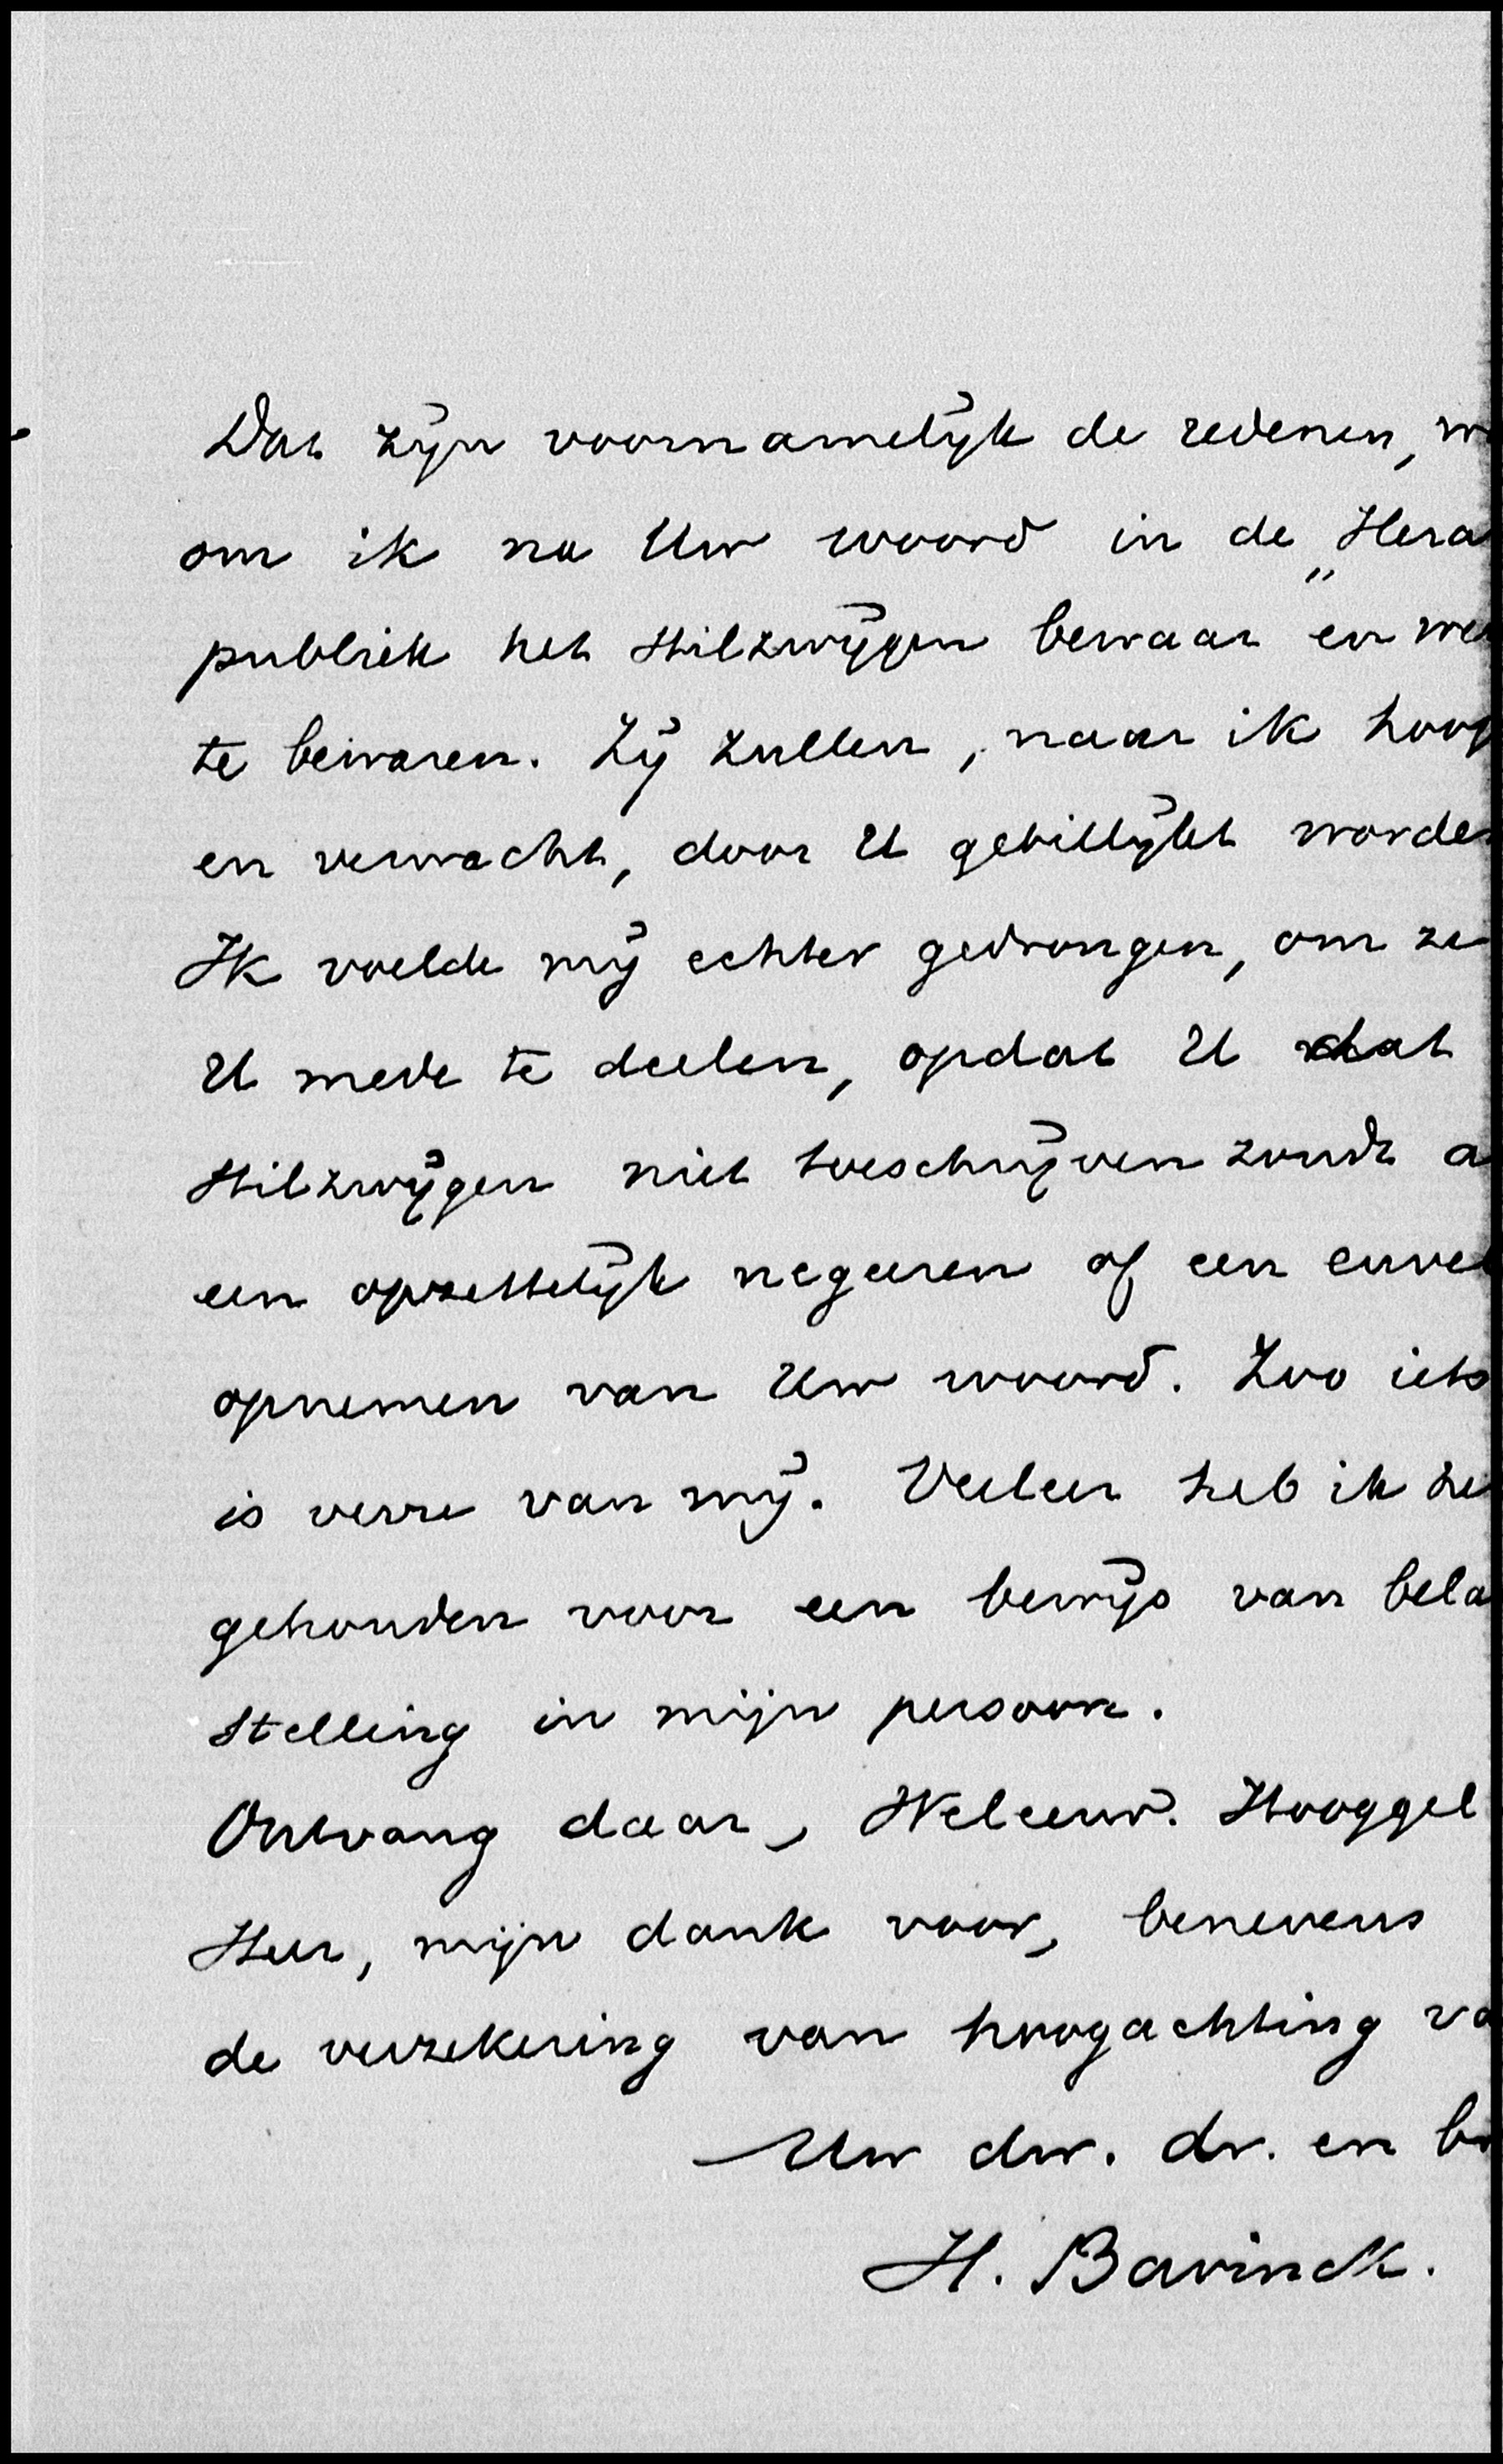 Dat zijn voornamelijk de redenen, w
om ik na Uw woord in de „Hera
publiek het stilzwijgen bewaar en we
te bewaren. Zij zullen, naar ik hoop
en verwacht, door U gebillijkt worde
Ik voelde mij echter gedrongen, om ze
U mede te deelen, opdat U dat
stilzwijgen niet toeschrijven zoudt a
een opzettelijk negeeren of een euvel
opnemen van Uw woord. Zoo iets
is verre van mij. Veeleer heb ik he
gehouden voor een bewijs van bela
stelling in mijn persoon.
Ontvang daar, Weleerw. Hooggel
Heer, mijn dank voor, benevens
de verzekering van hoogachting va
Uw dw. dr. en br
H. Bavinck.